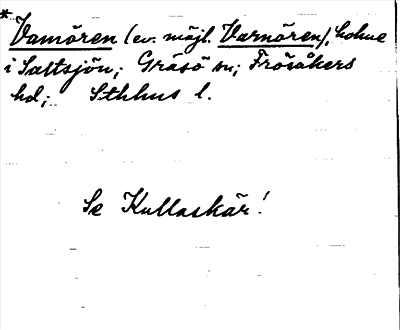 *Vamören (ev. möjl. Varnören), holme
i Saltsjön; Gräsö sn; Frösåkers
hd; Sthlms l.
Se Kullaskär!